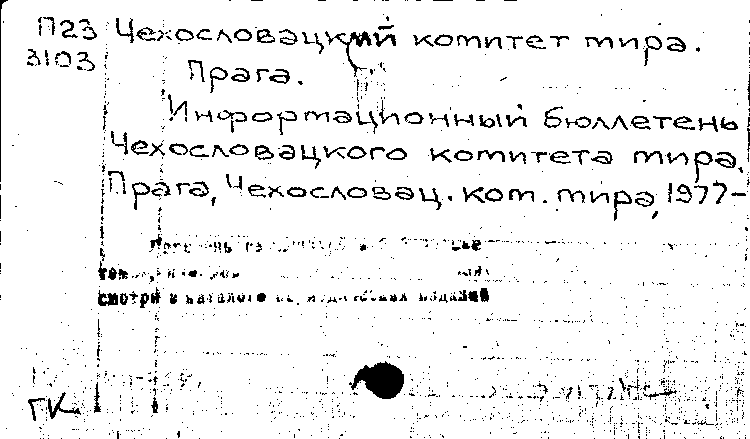 П23 Чехословацкий комитет мира.
3103
Прага.
Информационный бюллетень
Чехословацкого комитета мира.
Прага, Чехословац. ком. мира, 1977-
смотри в каталоге изданий
ГК